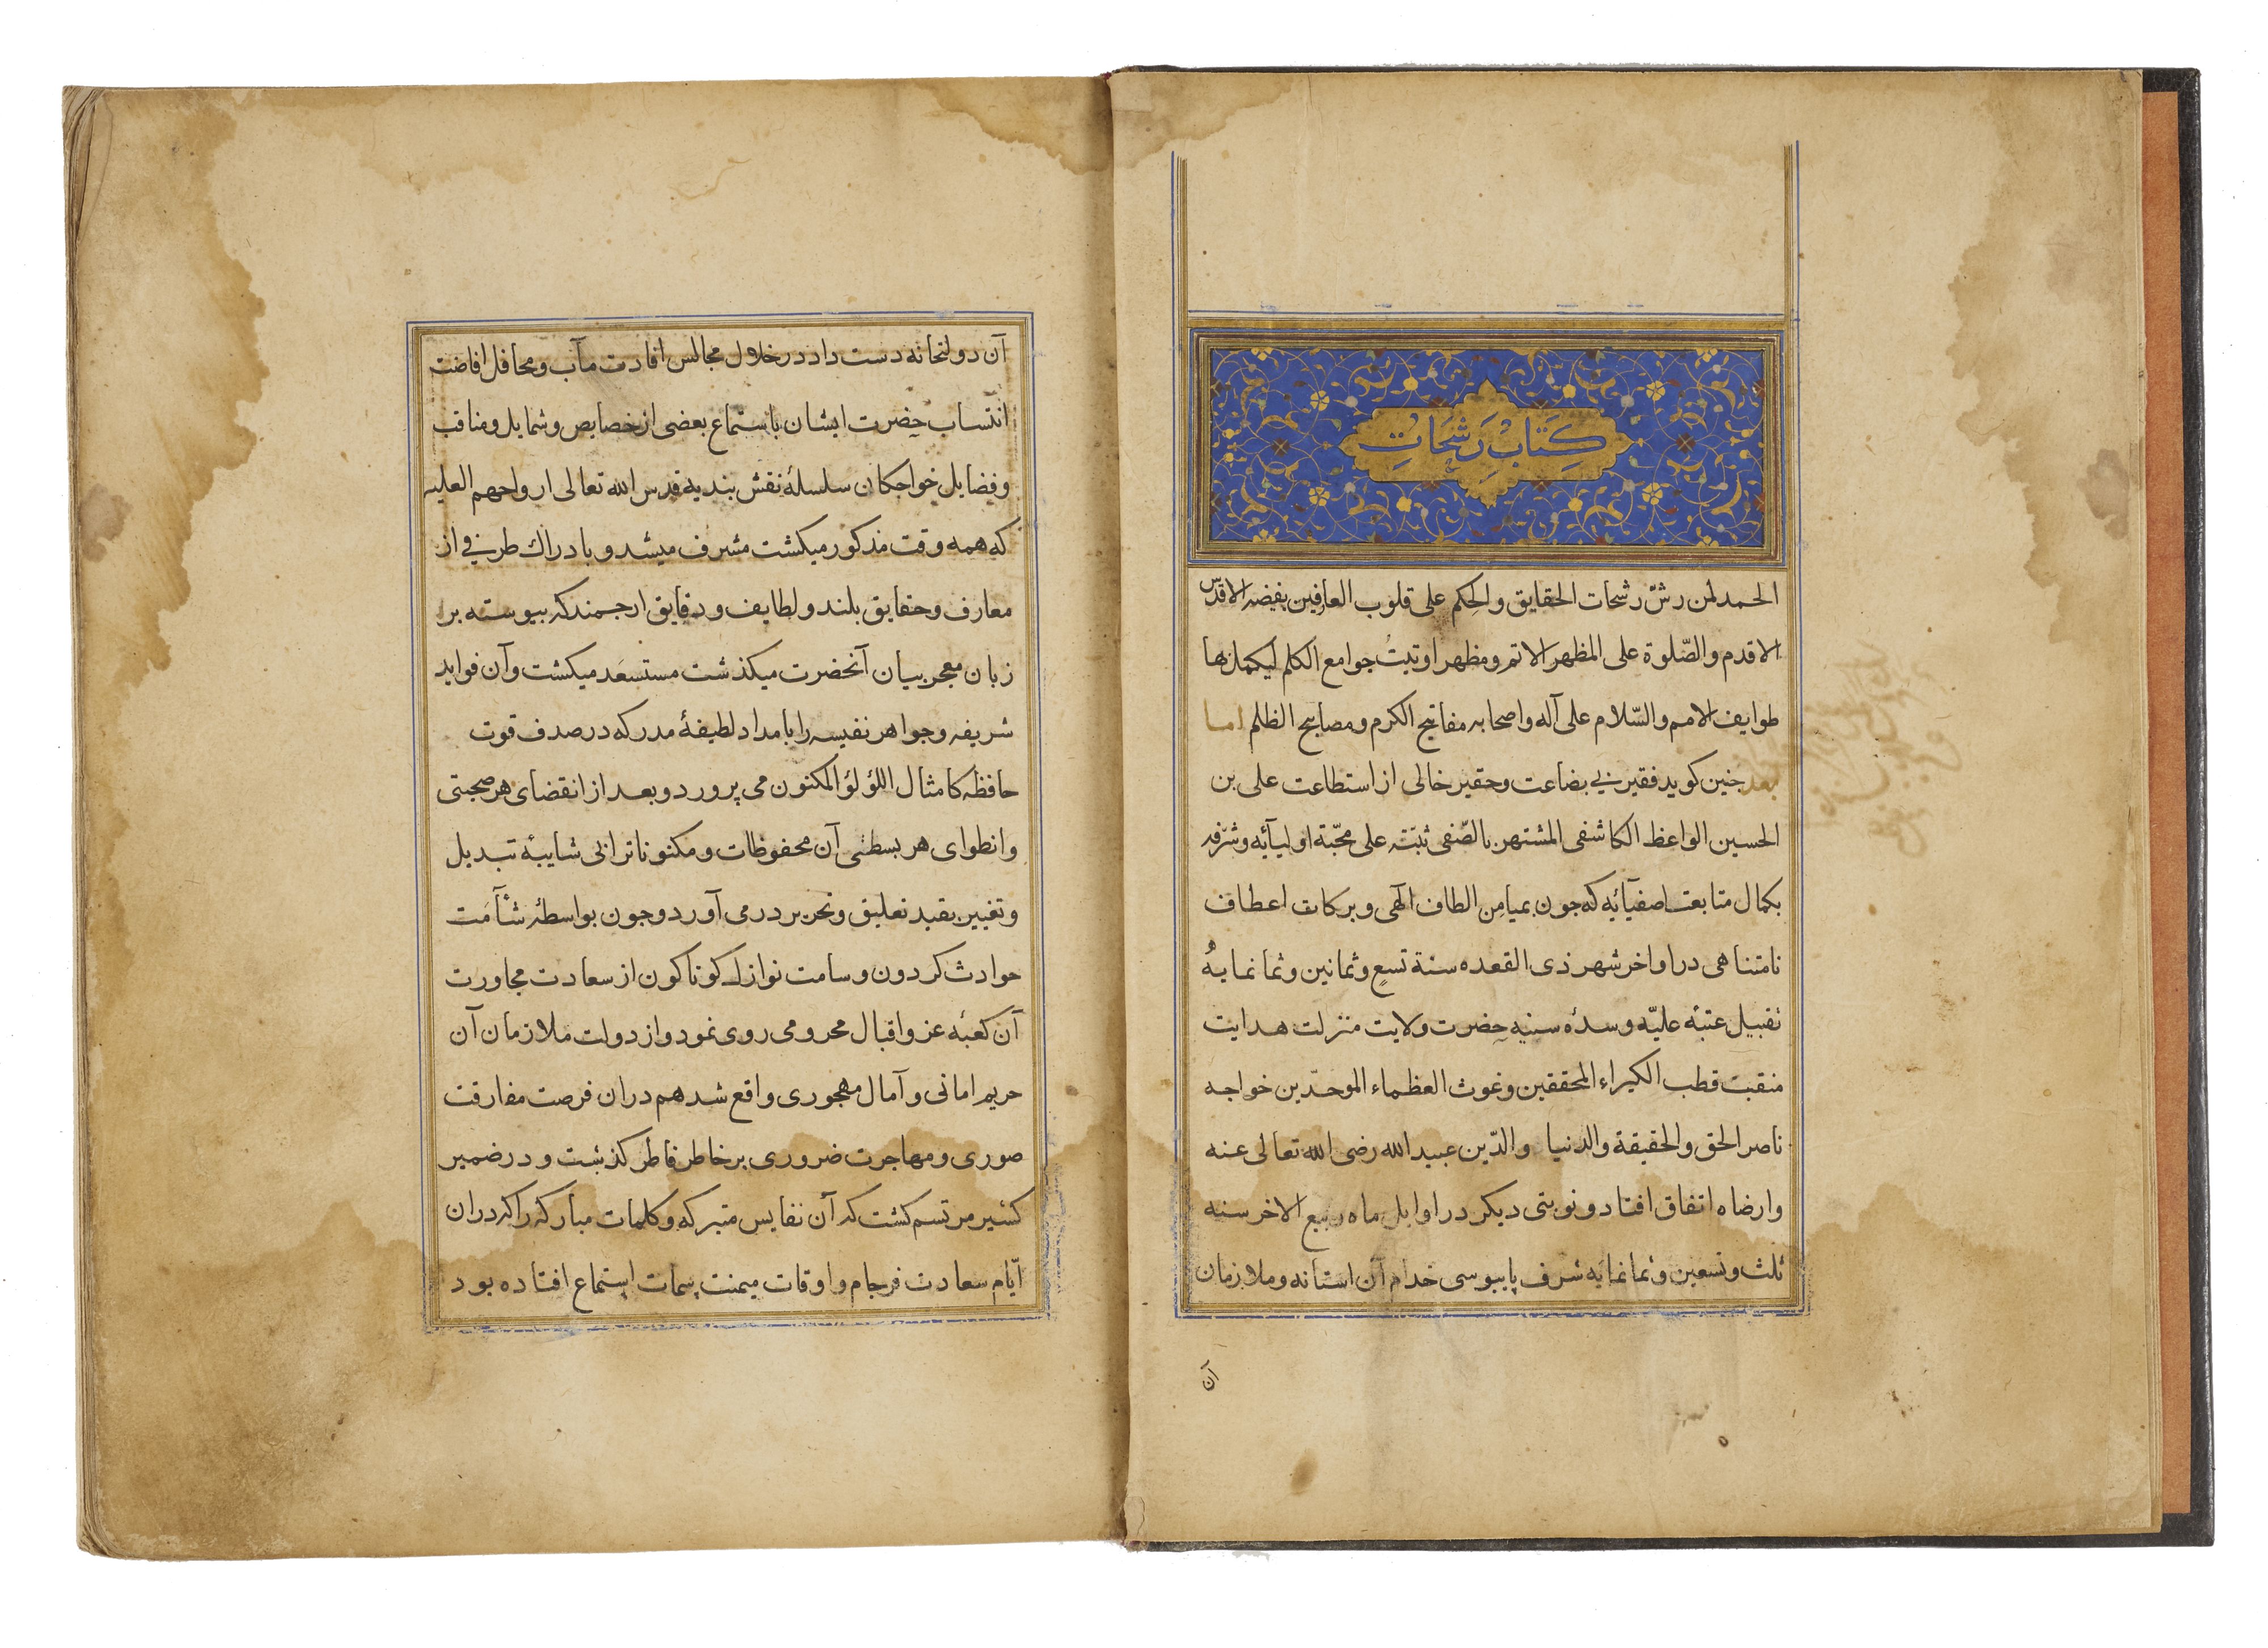 كِتَابُ رَشَحَاتِ
الحمد لمن رشّ رشحات الحقایق والحِکم علی قلوب العارفین بفیضه الاقدس
الاقدم والصّلوة علی المظهر الاتم ومظهر اوتیتُ جوامع الکلم لیکمل بها
طوایف الامم والسّلام علی آله واصحابه مفاتیح الکرم ومصابیح الظلم اما
بعد جنین کوید فقیر بی بضاعت وحقیر خالی از استطاعت علی بن
الحسین الواعظ الکاشفی المشتهر بالصّفی ثبّته علی محبّة اولیآئه وشرّفه
بکمال متابعت اصفیآئه که جون بمیامِن الطاف الٓهی وبرکات اعطاف
نامتناهی در اواخر شهر ذی القعده سنة تسعٍ وثمانین وثمانمایهُ
تقبیل عتبهٔ علیّه وسدهٔ سنیه حضرت ولایت منزلت هدایت
منقبت قطب الکبراء المحققین وغوث العظماء الموحّدین خواجه
ناصر الحق والحقیقة والدنیا والدّین عبید الله رضی الله تعالی عنه
وارضاه اتفاق افتاد ونوبتی دیکر در اوایل ماه ربیع الاخر سنه
ثلث وتسعین وثمانمایه شرف پایبوسی خدام آن استانه وملازمان
آن
آن دولتخانه دست داد در خلال مجالس افادت مآب ومحافل افاضت
انتساب حضرت ایشان باستماع بعضی از خصایص وشمایل ومناقب
وفضایل خواجکان سلسلهٔ نقش بندیه قدس الله تعالی ارواحهم العلیه
که همه وقت مذکور میکشت مشرف میشد وبادراک طرفی از
معارف وحقایق بلند ولطایف ودقایق ارجمند که پیوسته بر
زبان معجز بیان آنحضرت میکذشت مستسعَد میکشت وآن فواید
شریفه وجواهر نفیسه را بامداد لطیفهٔ مدرکه در صدف قوت
حافظه کامثال اللؤلؤ المکنون می پرورد وبعد از انقضای هر صحبتی
وانطوای هر بسطتی آن محفوظات ومکنونات را بی شایبهٔ تبدیل
وتغییر بقید تعلیق وتحریر در می آورد وجون بواسطهٔ شآمَت
حوادث کردون وسامت نوازل کوناکون از سعادت مجاورت
آن کعبهٔ عز واقبال محرومی روی نمود واز دولت ملازمان آن
حریم امانی وآمال مهجوری واقع شد هم دران فرصت مفارقت
صوری ومهاجرت ضروری بر خاطر فاطر کذشت ودر ضمیر
کسیر مرتسم کشت که آن نفایس متبرکه وکلمات مبارکه را که دران
ایّام سعادت فرجام واوقات میمنت سمات استماع افتاده بود